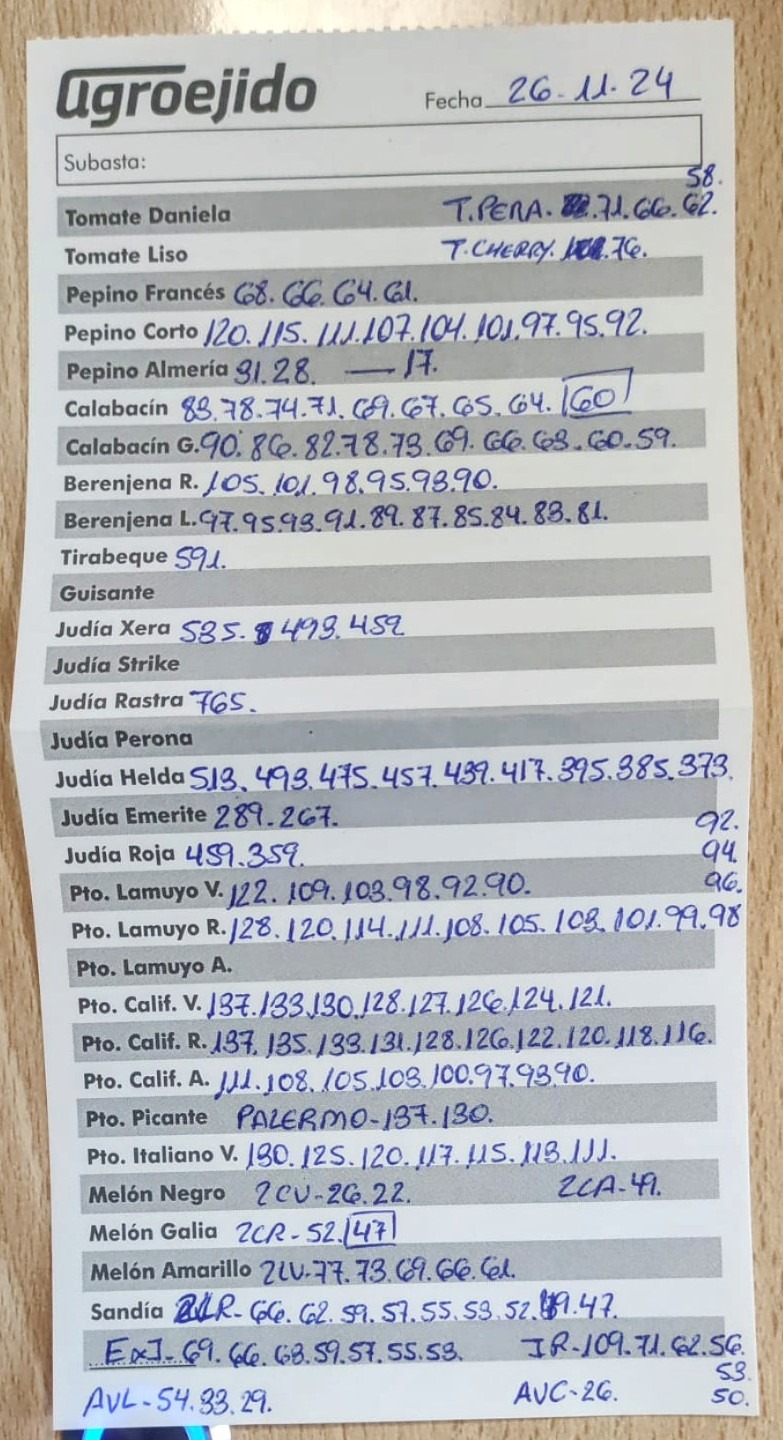 agroejido Fecha 26.11.24
Subasta:
58.
Tomate Daniela T.PERA. 71.66.62.
Tomate Liso T.CHERRY. 76.
Pepino Francés 68.66.64.61.
Pepino Corto 120.115.111.107.104.101.97.95.92.
Pepino Almería 31.28. — 17.
Calabacín 83.78.74.71.69.67.65.64. 60
Calabacín G. 90.86.82.78.73.69.66.63.60.59.
Berenjena R. 105.101.98.95.93.90.
Berenjena L. 97.95.93.91.89.87.85.84.83.81.
Tirabeque 591.
Guisante
Judía Xera 535. 493.459
Judía Strike
Judía Rastra 765.
Judía Perona
Judía Helda 513.493.475.457.439.417.395.385.373.
Judía Emerite 289.267.
92.
Judía Roja 459.359.
94.
Pto. Lamuyo V. 122.109.103.98.92.90.
96.
Pto. Lamuyo R. 128.120.114.111.108.105.103.101.99.98
Pto. Lamuyo A.
Pto. Calif. V. 137.133.130.128.127.126.124.121.
Pto. Calif. R. 137.135.133.131.128.126.122.120.118.116.
Pto. Calif. A. 111.108.105.103.100.97.93.90.
Pto. Picante PALERMO-137.130.
Pto. Italiano V. 130.125.120.117.115.113.111.
Melón Negro 2CV-26.22. 2CA-49.
Melón Galia 2CR-52. 47
Melón Amarillo 2LV-77.73.69.66.61.
Sandía 2LR-66.62.59.57.55.53.52.49.47.
ExJ-69.66.63.59.57.55.53. JR-109.71.62.56.
53.
AVL-54.33.29. AVC-26. 50.